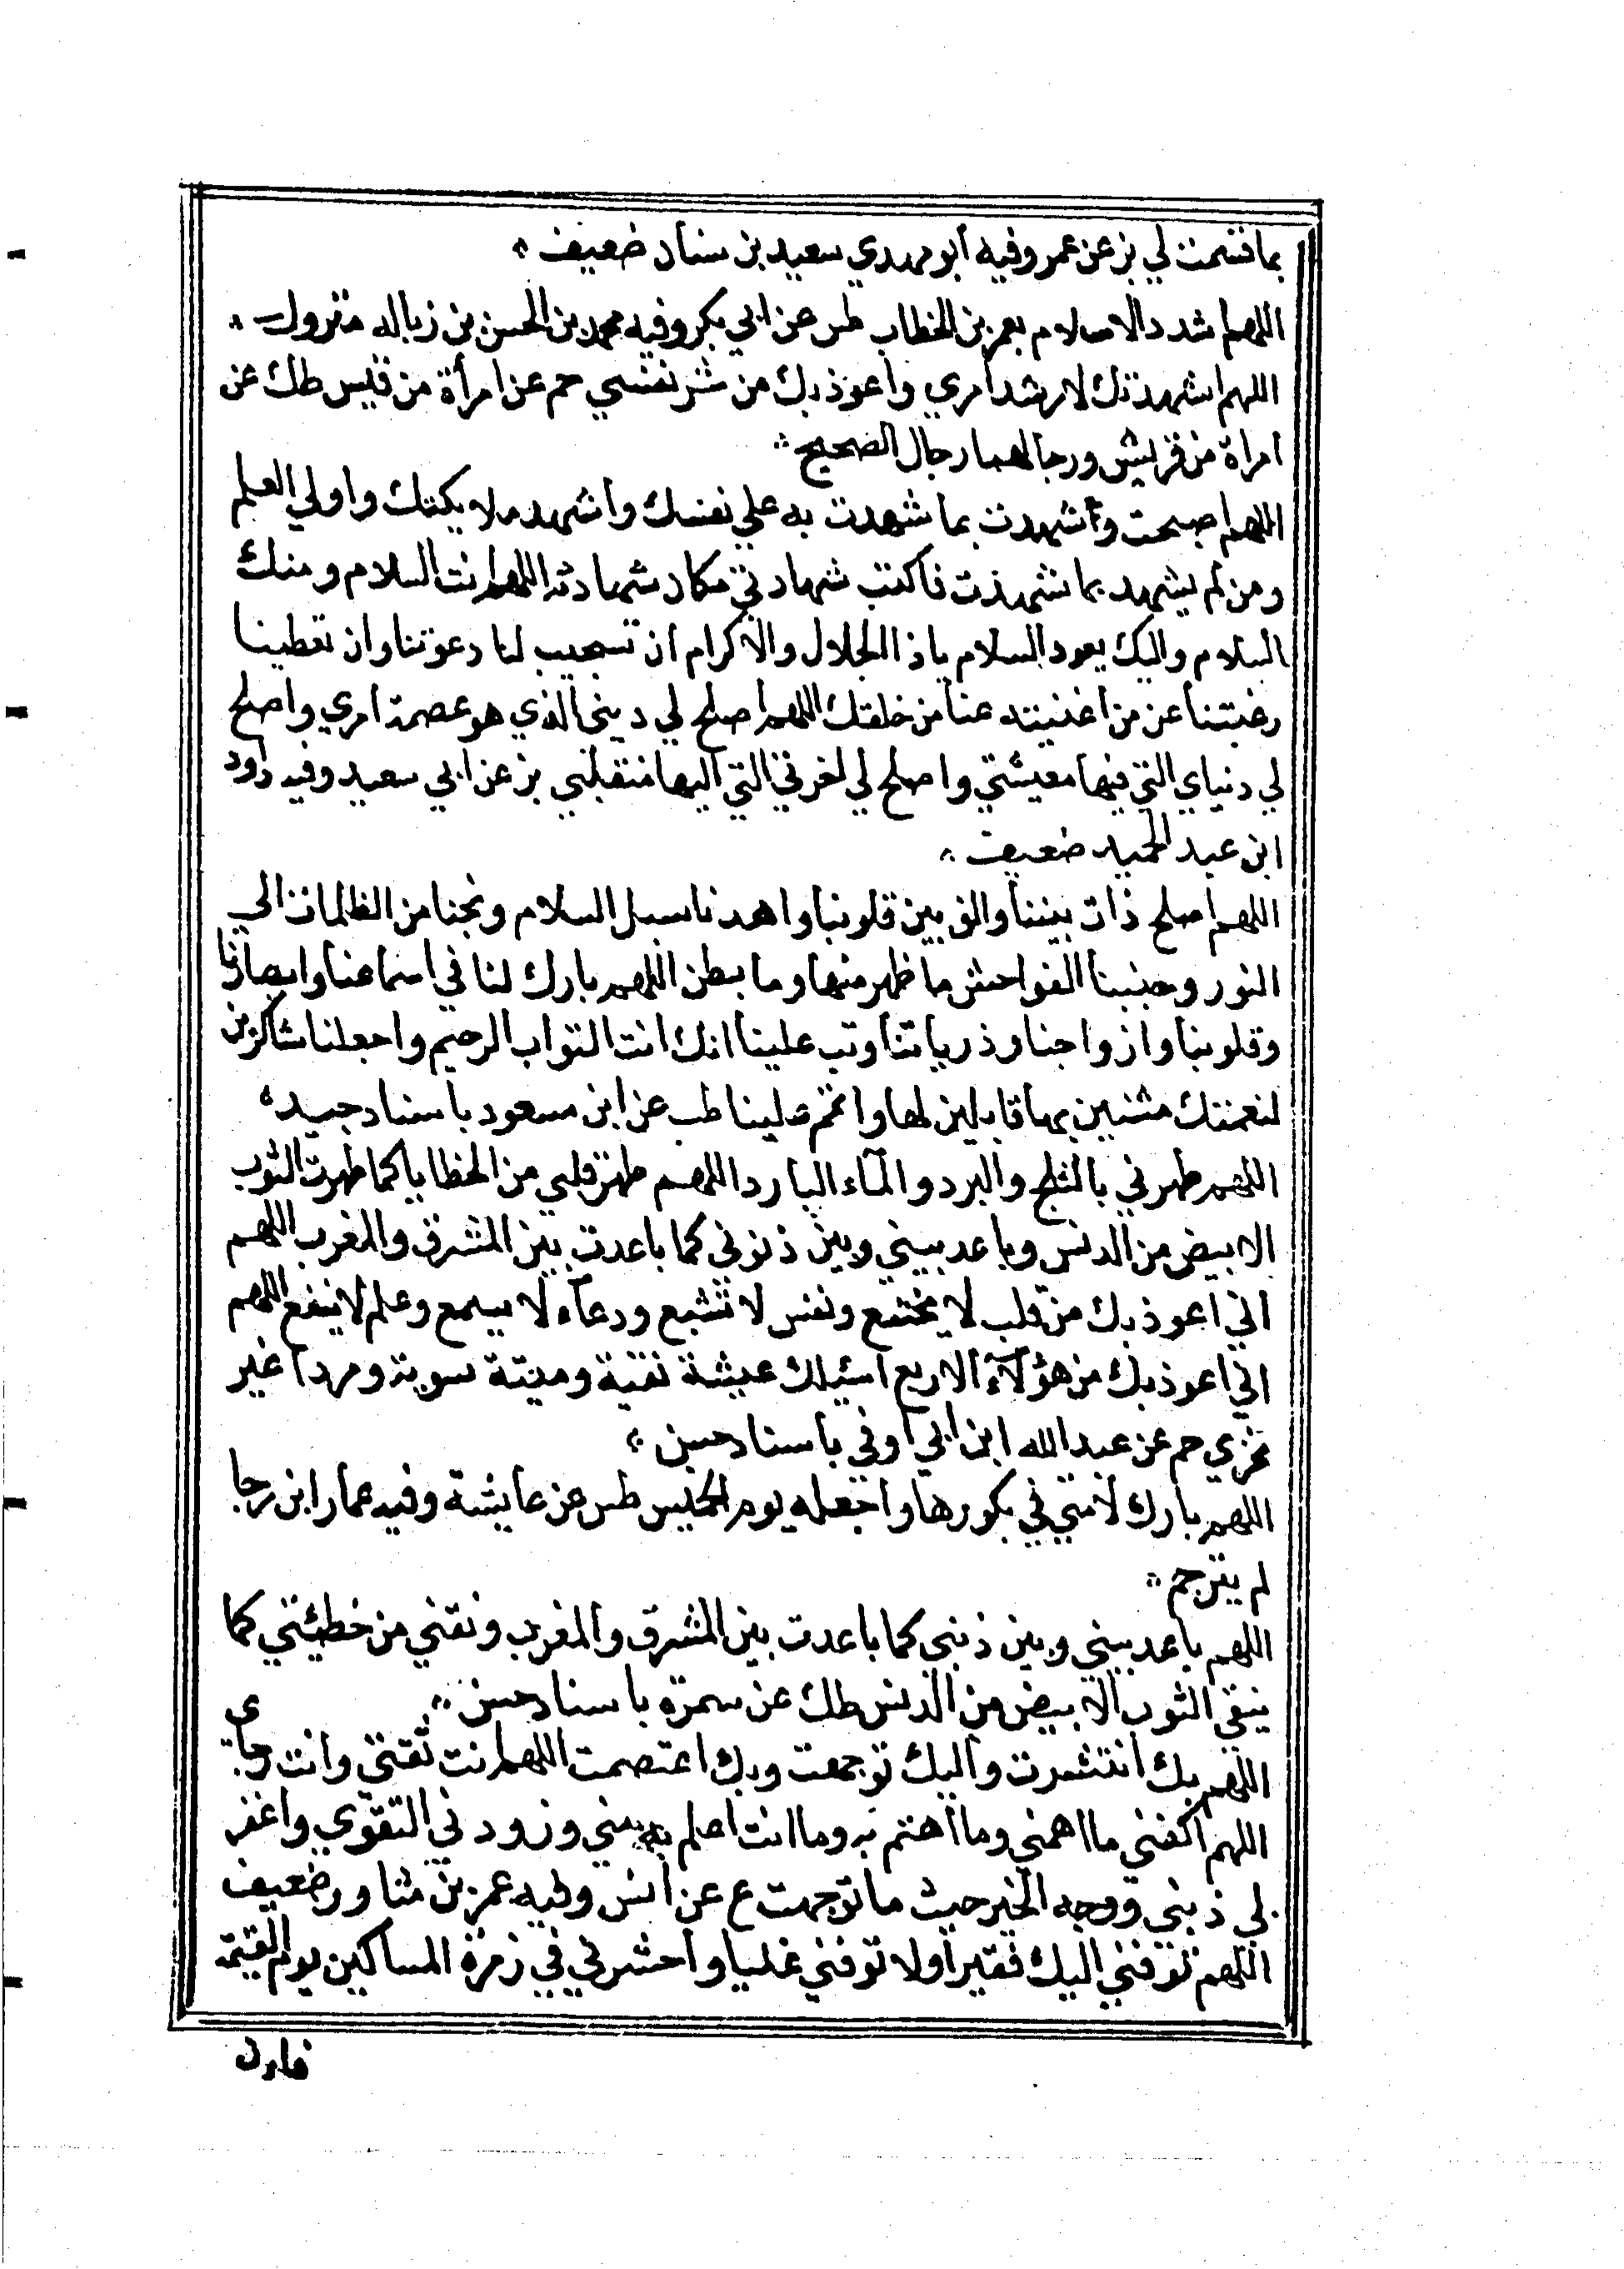 بما قسمت لي بز عن عمر وفيه أبو مهدي سعيد بن سنان ضعيف
اللهم اشدد الاسلام بعمر بن الخطاب طس عن ابي بكر وفيه محمد بن الحسن بن زباله متروك
اللهم استهديك لارشد أمري واعوذ بك من شر نفسي حم عن امرأة من قيس طك عن
امراة من قريش ورجالهما رجال الصحيح
اللهم اصبحت وأشهدت بما شهدت به علي نفسك وأشهد ملايكتك واولي العلم
ومن لم يشهد بما شهدت فاكتب شهادتي مكان شهادته اللهم انت السلام ومنك
السلام واليك يعود السلام ياذا الجلال والاكرام أن تسجيب لنا دعوتنا وان تعطينا
رغبتنا عن من اغنيته عنا من خلقك اللهم اصلح لي ديني الذي هو عصمة امري واصلح
لي دنياي التي فيها معيشتي واصلح لي اخرتي التي اليها منقلبي بز عن ابي سعيد وفيه داود
ابن عبد الحميد ضعيف
اللهم اصلح ذات بيننا والف بين قلوبنا واهدنا سبل السلام ونجنا من الظلمات الي
النور وجنبنا الفواحش ما ظهر منها وما بطن اللهم بارك لنا في اسماعنا وابصارنا
وقلوبنا وازواجنا وذرياتنا وتب علينا انك انت التواب الرحيم واجعلنا شاكرين
لنعمتك مثنين بها قابلين لها واتم علينا طب عن ابن مسعود باسناد جيد
اللهم طهرني بالثلج والبرد والمآء البارد اللهم طهر قلبي من الخطايا كما طهرت الثوب
الابيض من الدنس وباعد بيني وبين ذنوبي كما باعدت بين المشرق والمغرب اللهم
اني اعوذ بك من قلب لا يخشع ونفس لا تشبع ودعآء لا يسمع وعلم لا ينفع اللهم
اني اعوذ بك من هؤلآء الاربع اسئلك عيشة نقية وميتة سوية ومردا غير
مخزي حم عن عبد الله ابن ابي أوفي باسناد حسن
اللهم بارك لأمتي في بكورها واجعله يوم الخميس طس عن عايشة وفيه عمار ابن رجا
لم يترجم
اللهم باعد بيني وبين ذنبي كما باعدت بين المشرق والمغرب ونقني من خطيئتي كما
ينقي الثوب الابيض من الدنس طك عن سمرة باسناد حسن
اللهم بك انتشرت واليك توجهت وبك اعتصمت اللهم انت ثقتي وانت رجاي
اللهم اكفني ما اهمني وما أهتم به وما انت اعلم به مني وزودني التقوي واغفر
لي ذنبي ووجه الخير حيث ما توجهت ع عن انس وفيه عمر بن مساور ضعيف
اللهم توفني اليك فقيرا ولا توفني غنيا واحشرني في زمرة المساكين يوم القيمة
فان